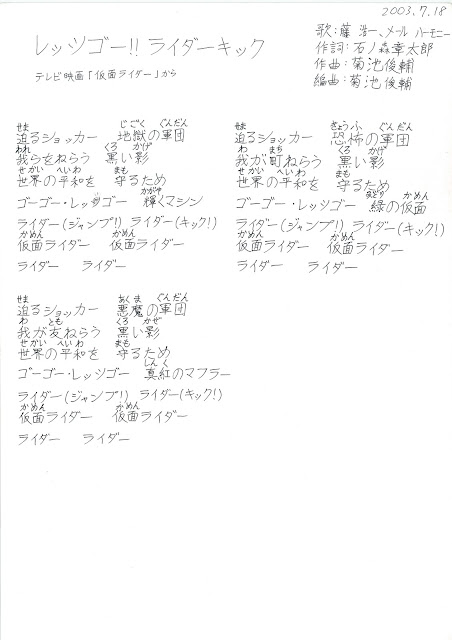 2003.7.18
レッツゴー!! ライダーキック
テレビ映画「仮面ライダー」から
歌：藤 浩一、メール ハーモニー
作詞：石ノ森章太郎
作曲：菊池俊輔
編曲：菊池俊輔
せま じごく ぐんだん
迫るショッカー 地獄の軍団
われ くろ かげ
我らをねらう 黒い影
せかい へいわ まも
世界の平和を 守るため
かがや
ゴーゴー・レッツゴー 輝くマシン
ライダー(ジャンプ!) ライダー(キック!)
かめん かめん
仮面ライダー 仮面ライダー
ライダー ライダー
せま きょうふ ぐんだん
迫るショッカー 恐怖の軍団
わ まち くろ かげ
我が町ねらう 黒い影
せかい へいわ まも
世界の平和を 守るため
みどり かめん
ゴーゴー・レッツゴー 緑の仮面
ライダー(ジャンプ!) ライダー(キック!)
かめん かめん
仮面ライダー 仮面ライダー
ライダー ライダー
せま あくま ぐんだん
迫るショッカー 悪魔の軍団
わ とも くろ かぜ
我が友ねらう 黒い影
せかい へいわ まも
世界の平和を 守るため
しんく
ゴーゴー・レッツゴー 真紅のマフラー
ライダー(ジャンプ!) ライダー(キック!)
かめん かめん
仮面ライダー 仮面ライダー
ライダー ライダー